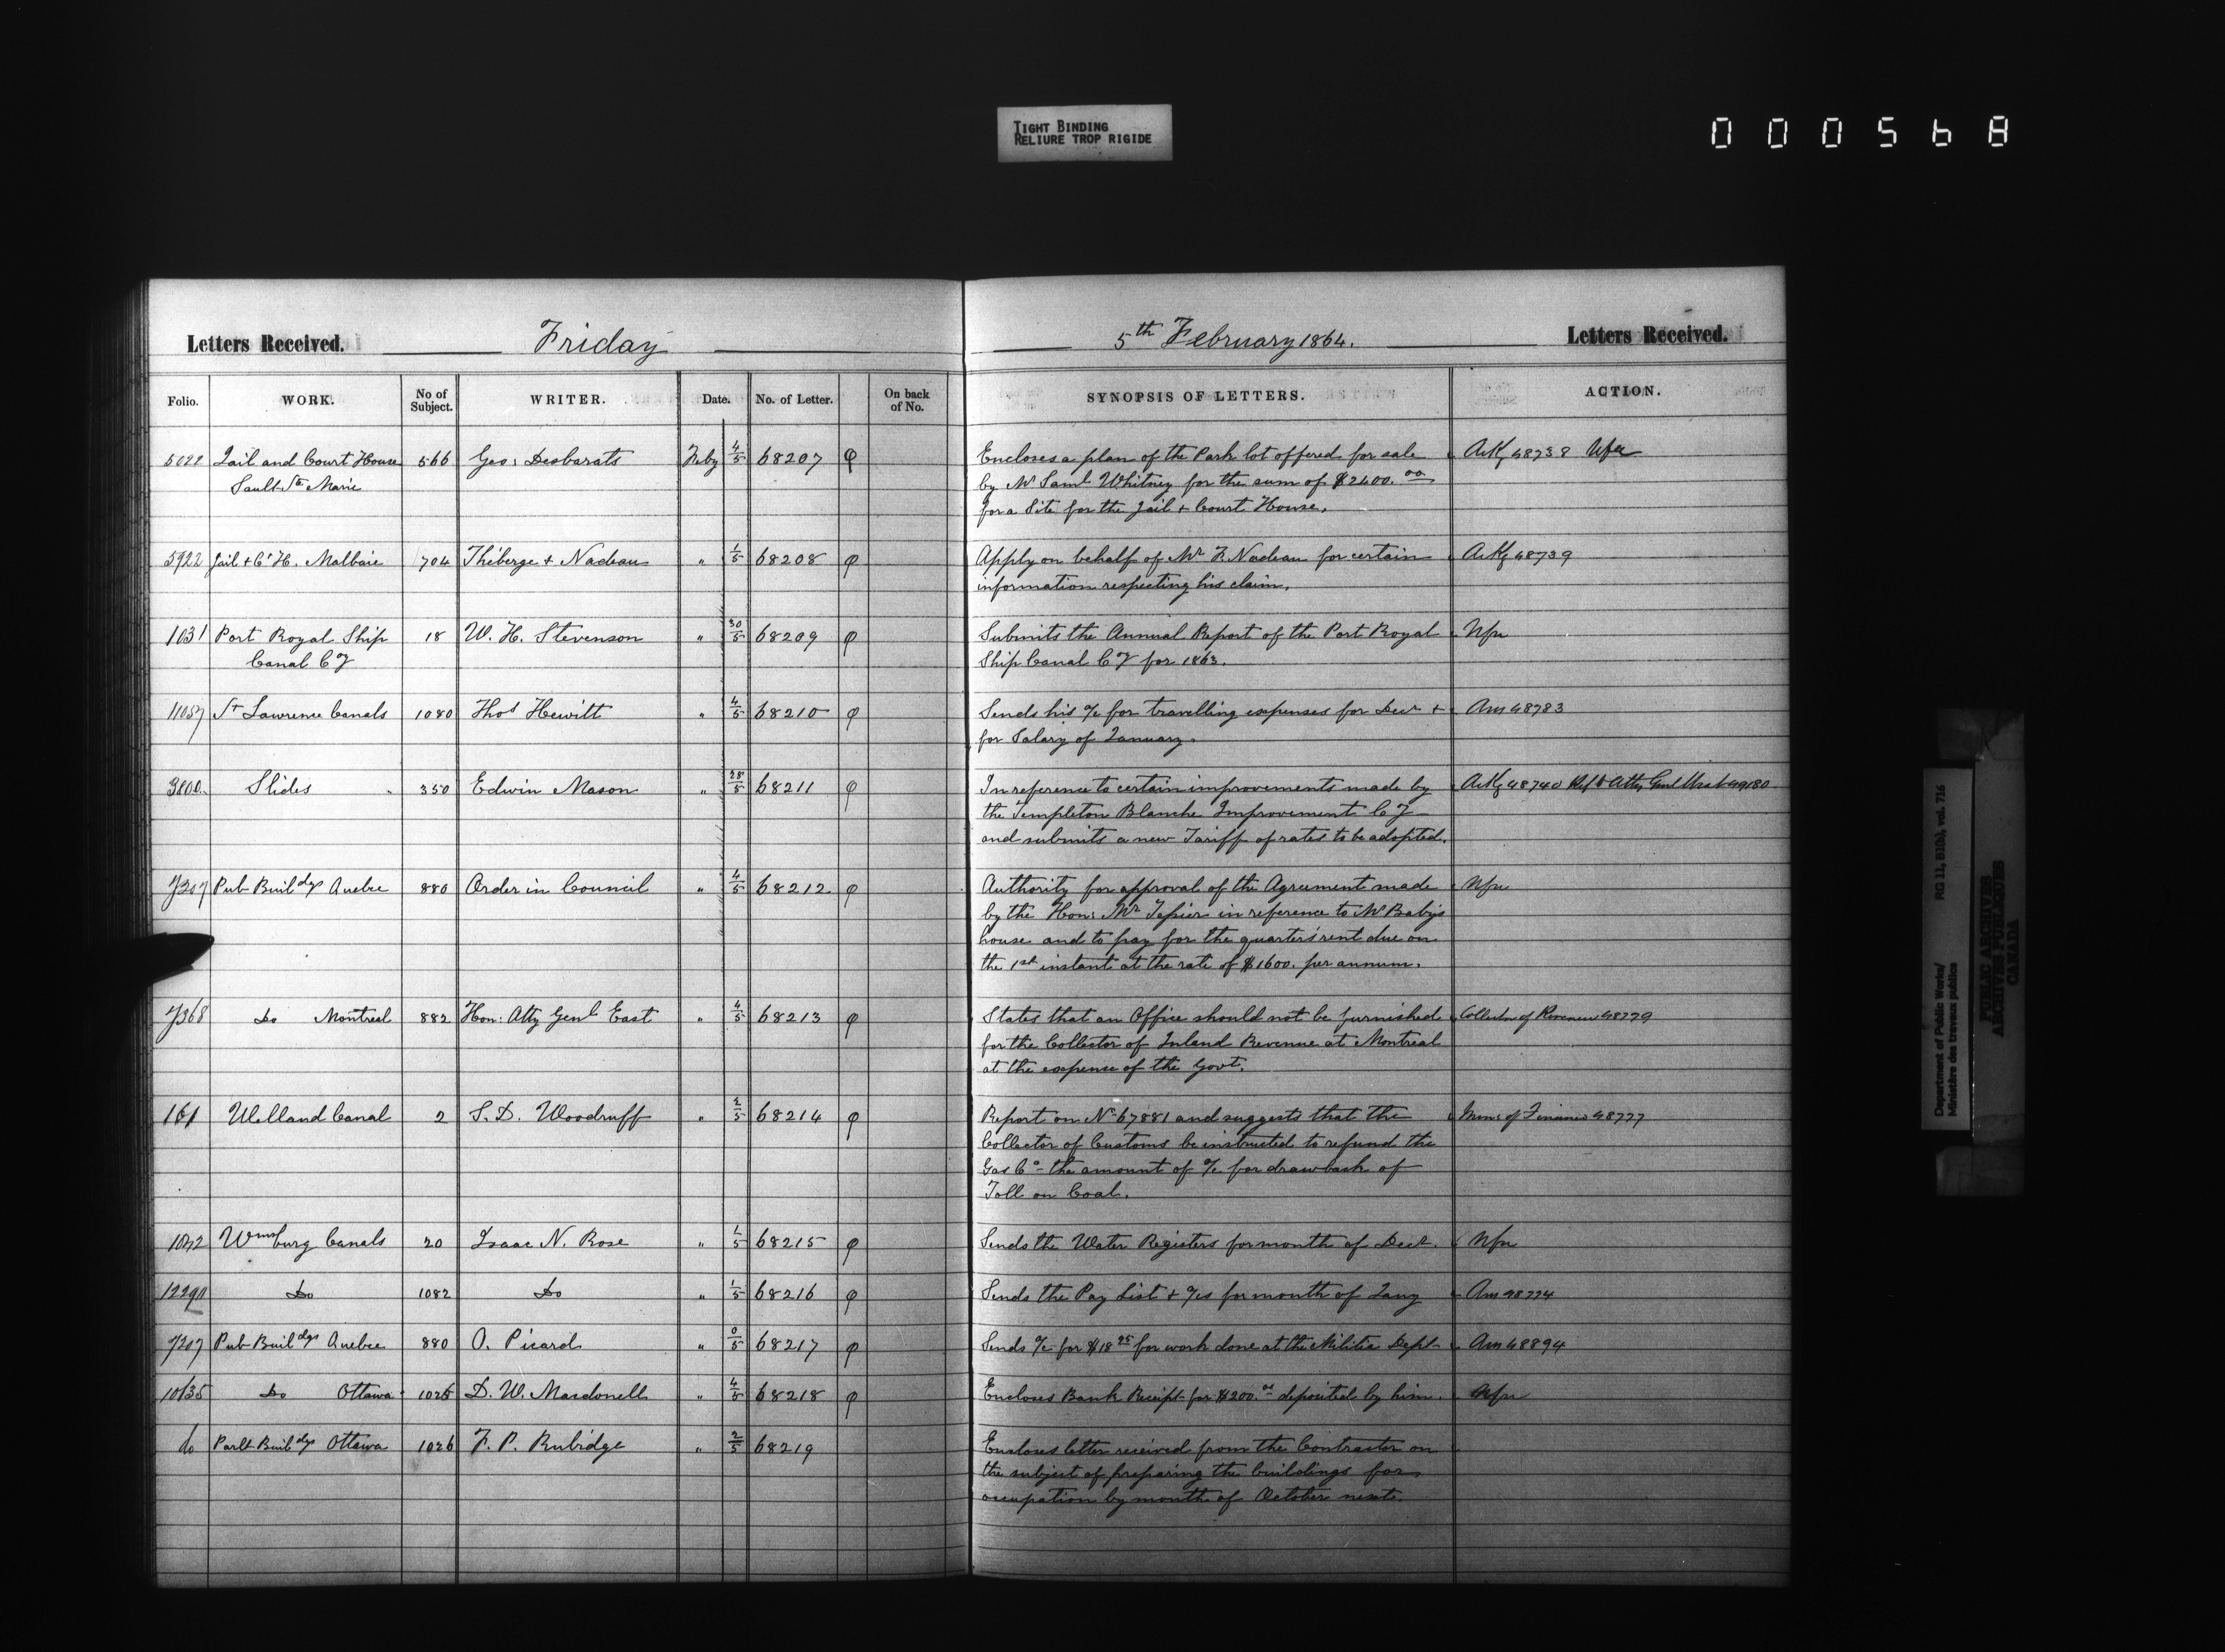 TIGHT BINDING
RELIURE TROP RIGIDE
000568
Letters Received. Friday
5th February 1864. Letters Received.
Folio. WORK. No of Subject. WRITER. Date. No. of Letter. On back of No. SYNOPSIS OF LETTERS. ACTION.
5022 Jail and Court House 566 Geo: Desbarats Feby 4/5 68207 φ Encloses a plan of the Park lot offered for sale Ackg 48738
Sault Ste Marie by Mr Saml Whitney for the sum of $2400.00
for a Site for the Jail + Court House.
5922 Jail + Ct H. Malbaie 704 Théberge + Nadeau " 1/5 68208 φ Apply on behalf of Mr F. Nadeau for certain Ackg 48739
information respecting his claim.
1031 Port Royal Ship 18 W. H. Stevenson " 30/5 68209 φ Submits the Annual Report of the Port Royal Nfn
Canal Cy Ship Canal Cy for 1863.
11057 St Lawrence Canals 1080 Thos Hewitt " 4/5 68210 φ Sends his a/c for travelling expenses for Decr + Ans 48783
for Salary of January.
3800. Slides 350 Edwin Mason " 28/5 68211 φ In reference to certain improvements made by Ackg 48740 Ref to Atty Genl West 49180
the Templeton Blanche Improvement Cy
and submits a new Tariff of rates to be adopted.
7207 Pub Buildgs Quebec 880 Order in Council " 4/5 68212 φ Authority for approval of the Agreement made Nfn
by the Hon: Mr Tessier in reference to Mr Baby's
house and to pay for the quarter's rent due on
the 1st instant at the rate of $1600. per annum.
7368 Do Montreal 882 Hon: Atty Genl East " 4/5 68213 φ States that an Office should not be furnished Collector of Revenue 48779
for the Collector of Inland Revenue at Montreal
at the expense of the Govt.
161 Welland Canal 2 S. D. Woodruff " 2/5 68214 φ Report on No 67881 and suggests that the Minr of Finance 48777
Collector of Customs be instructed to refund the
Gas Co the amount of a/c for drawback of
Toll on Coal.
1042 Wmsburg Canals 20 Isaac N. Rose " 1/5 68215 φ Sends the Water Registers for month of Decr. Nfn
12290 Do 1082 Do " 1/5 68216 φ Sends the Pay List + a/cs for month of Jany Ans 48774
7207 Pub Buildgs Quebec 880 O. Picard " 0/5 68217 φ Sends a/c for $18 25 for work done at the Militia Dept Ans 48894
10635 Do Ottawa 1025 D. W. Macdonell " 4/5 68218 φ Encloses Bank Receipt for $200.00 deposited by him. Nfn
do Parlt Buildgs Ottawa 1026 F. P. Rubidge " 2/5 68219 Encloses letter received from the Contractor on
the subject of preparing the buildings for
occupation by month of October next.
Department of Public Works/ RG 11, B1(b), vol. 716
Ministère des travaux publics
PUBLIC ARCHIVES
ARCHIVES PUBLIQUES
CANADA